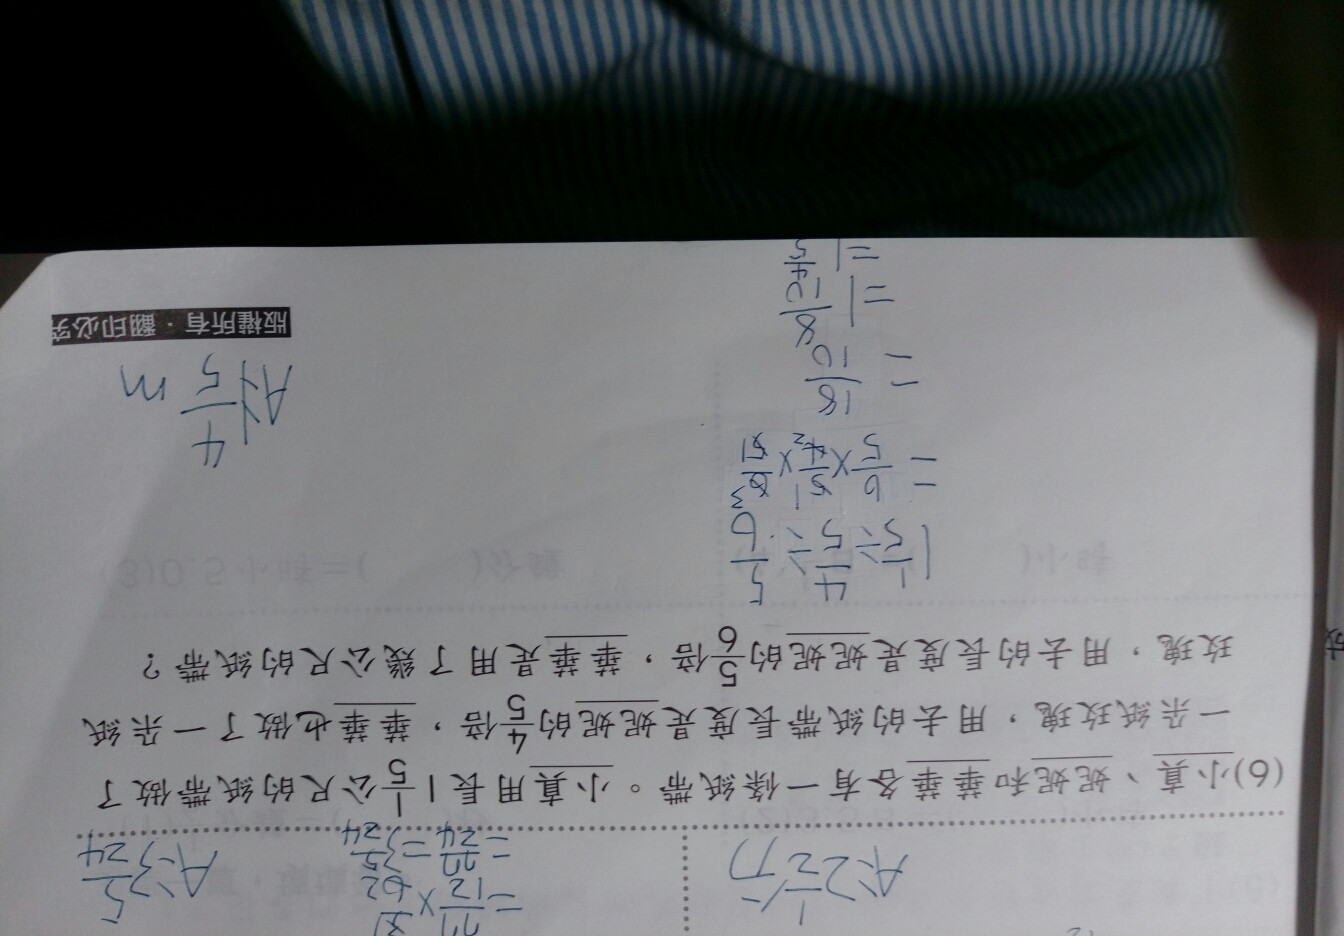 A:2 1/2 万
= 77/12 ×
= 77/24 = 3 5/24
A:3 5/24
(6)小真、妮妮和華華各有一條紙帶。小真用長1 1/5公尺的紙帶做了
一朵紙玫瑰，用去的紙帶長度是妮妮的4/5倍，華華也做了一朵紙
玫瑰，用去的長度是妮妮的5/6倍，華華是用了幾公尺的紙帶？
1 1/5 ÷ 4/5 ÷ 5/6
= 6/5 × 5/4 × 6/5
= 18/10
= 1 8/10
= 1 4/5
A:1 4/5 m
版權所有・翻印必究